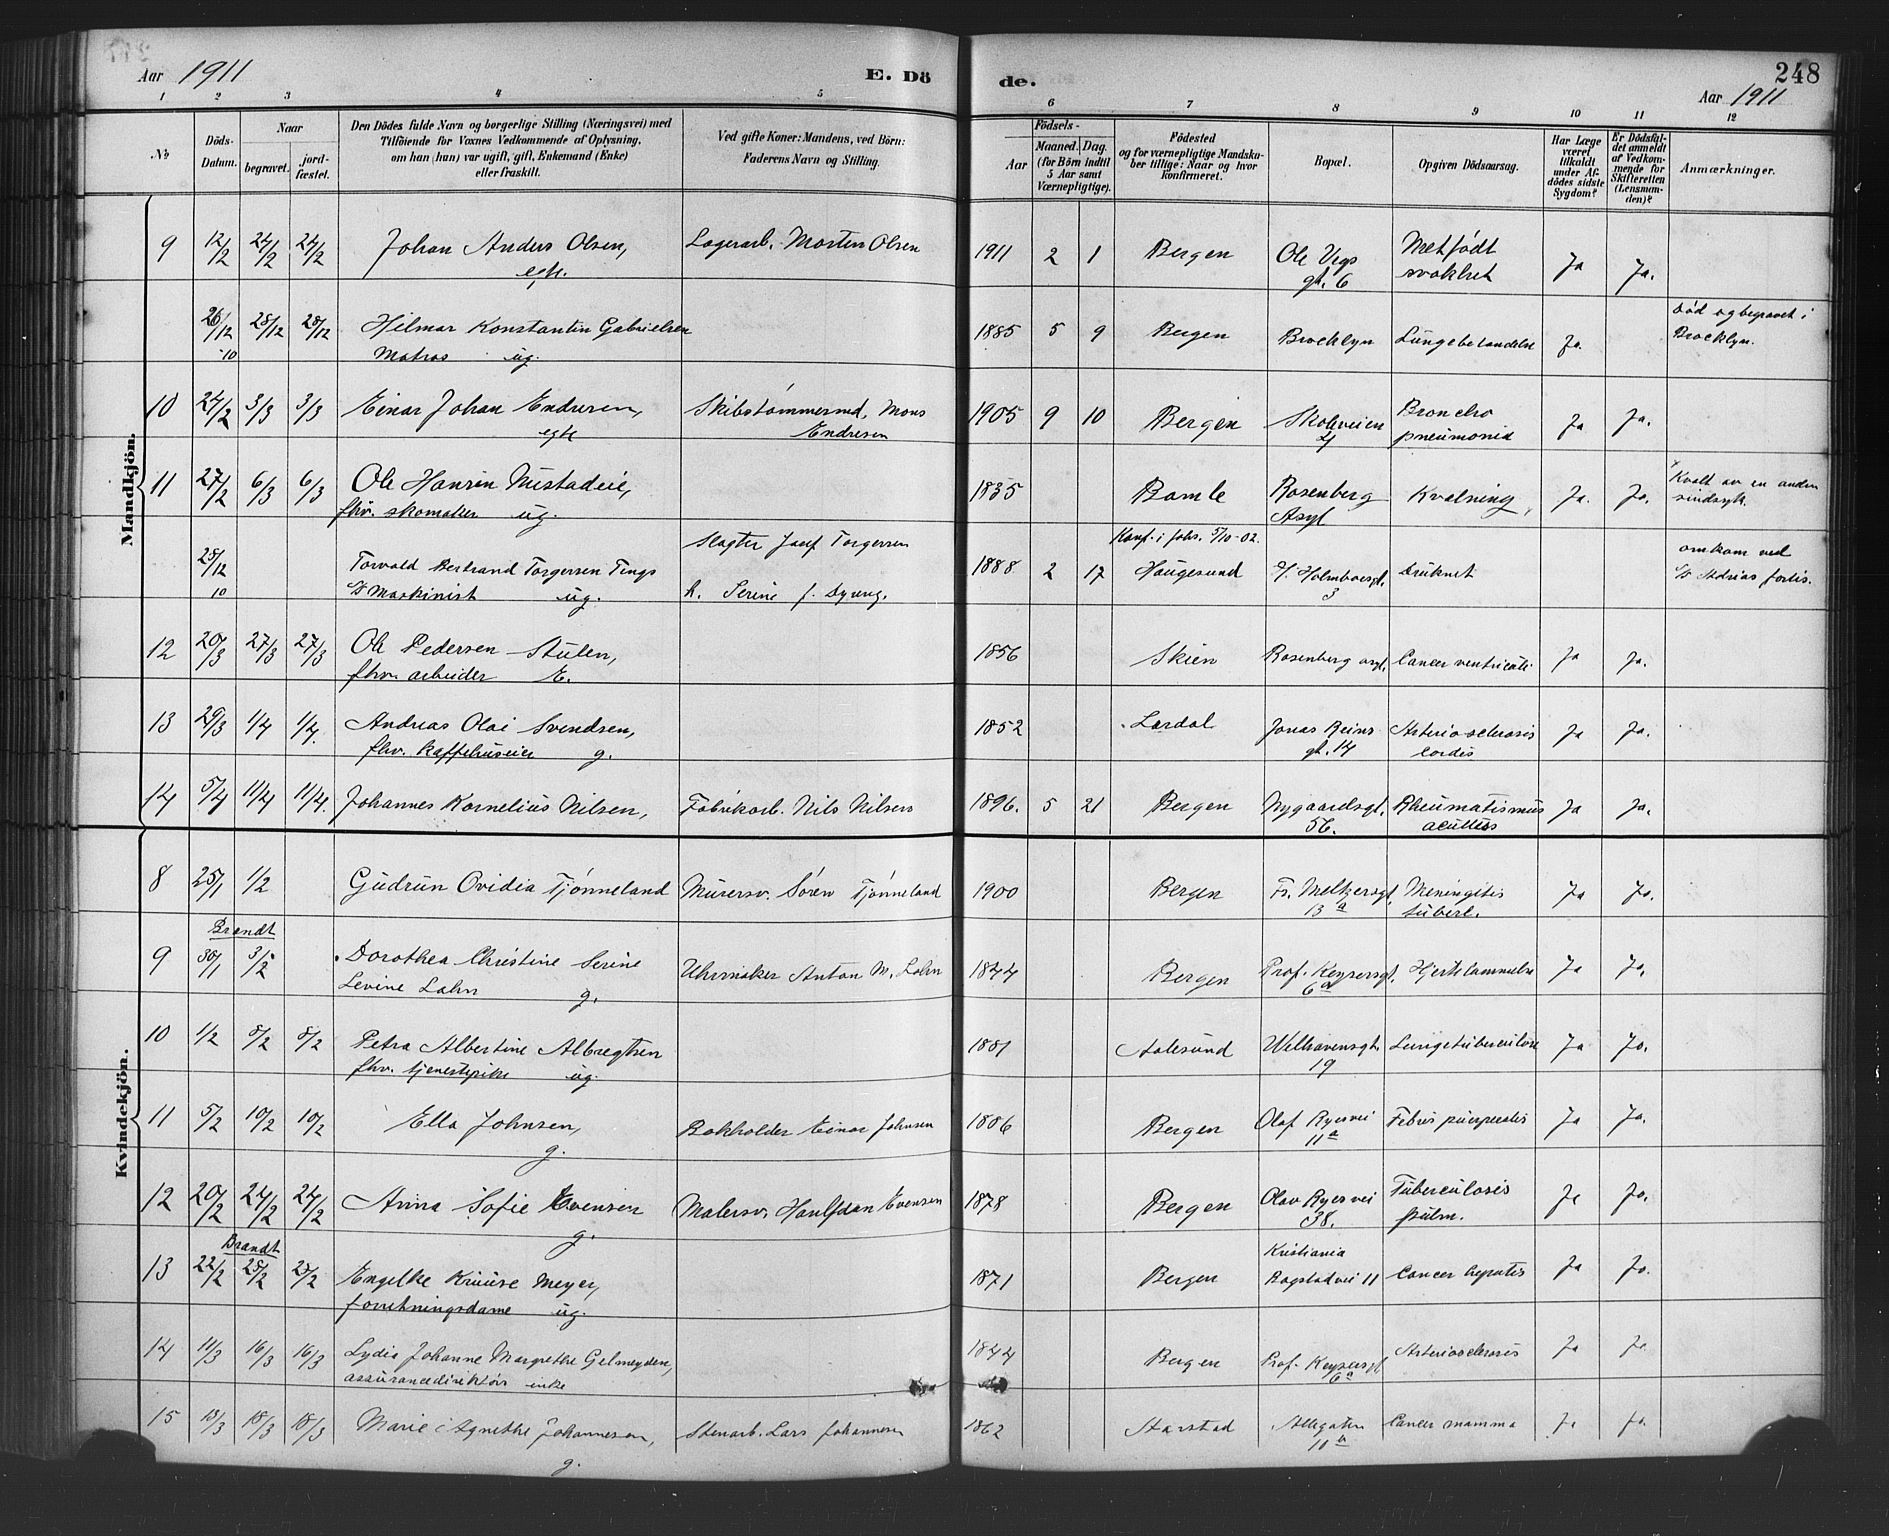 Aar 1911
E. Dö
de.
248
Aar 1911
1 2 3 4 5 6 7 8 9 10 11 12
No
Döds-Datum.
Naar
begravet.
jord-fæstet.
Den Dödes fulde Navn og borgerlige Stilling (Næringsvei) med
Tilföiende for Voxnes Vedkommende af Oplysning,
om han (hun) var ugift, gift, Enkemand (Enke)
eller fraskilt.
Ved gifte Koner: Mandens, ved Børn:
Faderens Navn og Stilling.
Födsels-
Aar
Maaned. Dag.
(for Börn indtil
5 Aar samt
Værnepligtige).
Födested
og for værnepligtige Mandska-
ber tillige: Naar og hvor
konfirmeret.
Bopæl.
Opgiven Dödsaarsag.
Har Læge
været
tilkaldt
under Af-
dödes sidste
Sygdom?
Er Dödsfal-
det anmeldt
af Vedkom-
mende for
Skifteretten
(Lensman-
den)?
Anmærkninger.
Mandkjön.
9 12/2 24/2 24/2 Johan Anders Olsen, Lagerarb. Morten Olsen 1911 2 1 Bergen Ole Vigs Medfødt Ja Ja.
egte. gt. 6 svakhet
26/12 28/12 28/12 Hilmar Konstantin Gabrielsen 1885 5 9 Bergen Brooklyn Lungebetændelse Ja. Död og begravet i
10 Matros ug. Brooklyn.
10 24/2 3/3 3/3 Einar Johan Endresen, Skibstømmermd. Mons 1905 9 10 Bergen Skoleveien Broncho Ja Ja.
egte Endresen 4 pneumonia
11 27/2 6/3 6/3 Ole Hansen 1835 Bamle Rosenberg Kvælning Ja. Ja. Kvalt av en anden
fhv. skomaker ug. Asyl sindsyk.
Slagter Josef Torgersen Konf. i Johs. 5/10-02.
28/12 Torvald Bertrand Torgersen 1888 2 17 Haugesund H. Holmboesgt. Druknet omkom ved
10 Maskinist ug. h. Serine f. 3 D/S Adrias forlis.
12 20/3 27/3 27/3 Ole Pedersen Stulen, 1856 Skien Rosenberg asyl. Cancer ventriculi Ja Ja.
fhv. arbeider E.
13 29/3 1/4 1/4. Andreas Olai Svendsen, 1852 Lærdal Jonas Reins Arteriosclerosis Ja Ja.
fhv. kaffehuseier g. gt. 14 cordis
14 5/4 11/4 11/4. Johannes Kornelius Nilsen, Fabrikarb. Nils Nilsen 1896. 5 21 Bergen Nygaardsgt. Rheumatismus Ja Ja.
56. acutus
Kvindekjön.
8 25/1 1/2 Gudrun Ovidia Tjønneland Murersv. Søren Tjønneland 1900 Bergen Fr. Meltzersgt. Meningitis Ja Ja.
13 a tuberc.
Brændt
9 30/1 3/2 Dorothea Christine Serine Uhrmaker Anton M. Lahn 1844 Bergen Prof. Keysersgt. Hjertelammelse Ja Ja.
Levine Lahn g. 6a
10 1/2 8/2 8/2 Petra Albertine Albregtsen 1881 Aalesund Welhavensgt. Lungetuberculose Ja Ja.
fhv. tjenestepike ug. 19
11 5/2 10/2 10/2 Ella Johnsen, Bokholder Einar Johnsen 1886 Bergen Olaf Ryesvei Febris puerperalis Ja Ja.
g. 11a
12 20/2 24/2 24/2 Anna Sofie Evensen Malersv. Haulfdan Evensen 1878 Bergen Olav Ryesvei Tuberculosis Ja Ja.
g. 38. pulm.
Brændt Kristiania
13 22/2 25/2 25/2 Engelke Kruuse Meyer, 1871 Bergen Bogstadvei 11 Cancer hepatis Ja Ja.
forretningsdame ug.
14 11/3 16/3 16/3 Lydia Johanne Margrethe Gelmeyden, 1844 Bergen Prof. Keysersgt. Arteriosclerosis Ja Ja
assurancedirektørs enke 6a
15 13/3 18/3 18/3 Marie Agnethe Johannesen, Stenarb. Lars Johannesen 1862 Aarstad Allegaten Cancer mamma Ja Ja.
g.